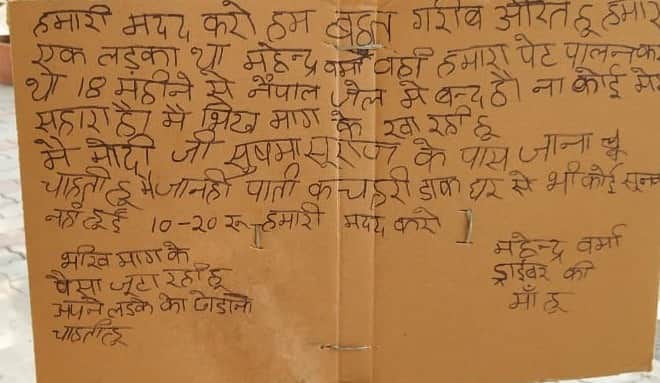 हमारी मदद करो हम बहुत गरीब औरत हू हमार
एक लड़का था महेन्द्र वर्मा वही हमारा पेट पालनकर
था 18 महीने से नैपाल जेल मे बन्द है। ना कोई मेर
सहारा है। मै भिख माग के खा रही हू
मे मोदी जी सुषमा सूराज के पास जाना
चाहती हू मै जा नही पाती कचहरी डाक घर से भी कोई सून
नही हुई 10-20 रू हमारी मदद करो
भखि माग के
पैसा जूटा रही हू
अपने लड़के को छोडाने
चाहती हू
महेन्द्र वर्मा
ड्राईबर की
माँ हू